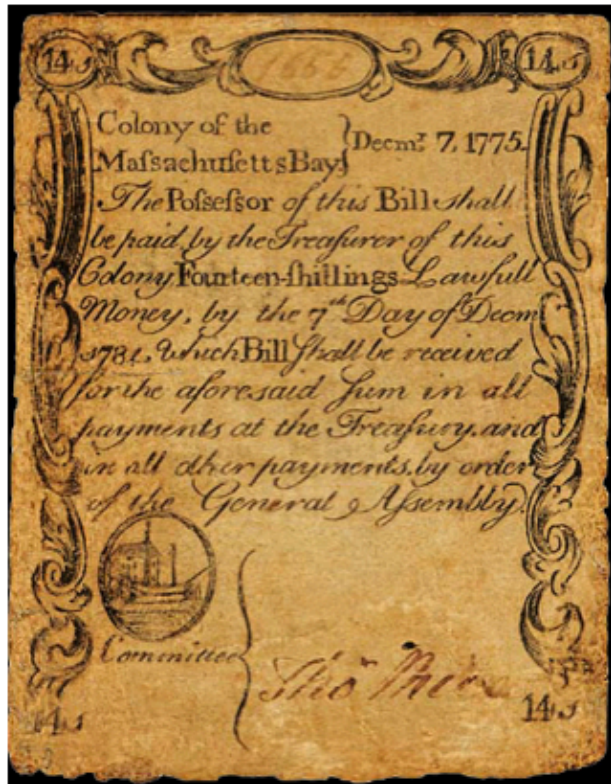 14s 14s
Colony of the
Maſsachuſetts Bay } Decmr. 7, 1775.
The Poſseſsor of this Bill shall
be paid, by the Treaſurer of this
Colony Fourteen-ſhillings Lawfull
Money, by the 7th Day of Decm
1781, which Bill ſhall be received
for the aforesaid ſum in all
payments at the Treaſury, and
in all other payments, by order
of the General Aſsembly.
Committee
14s 14s